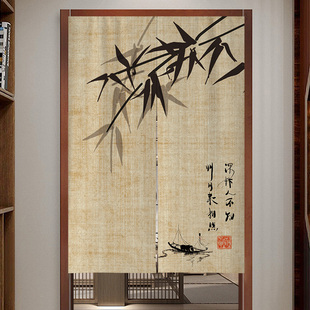 深林人不知
明月來相照